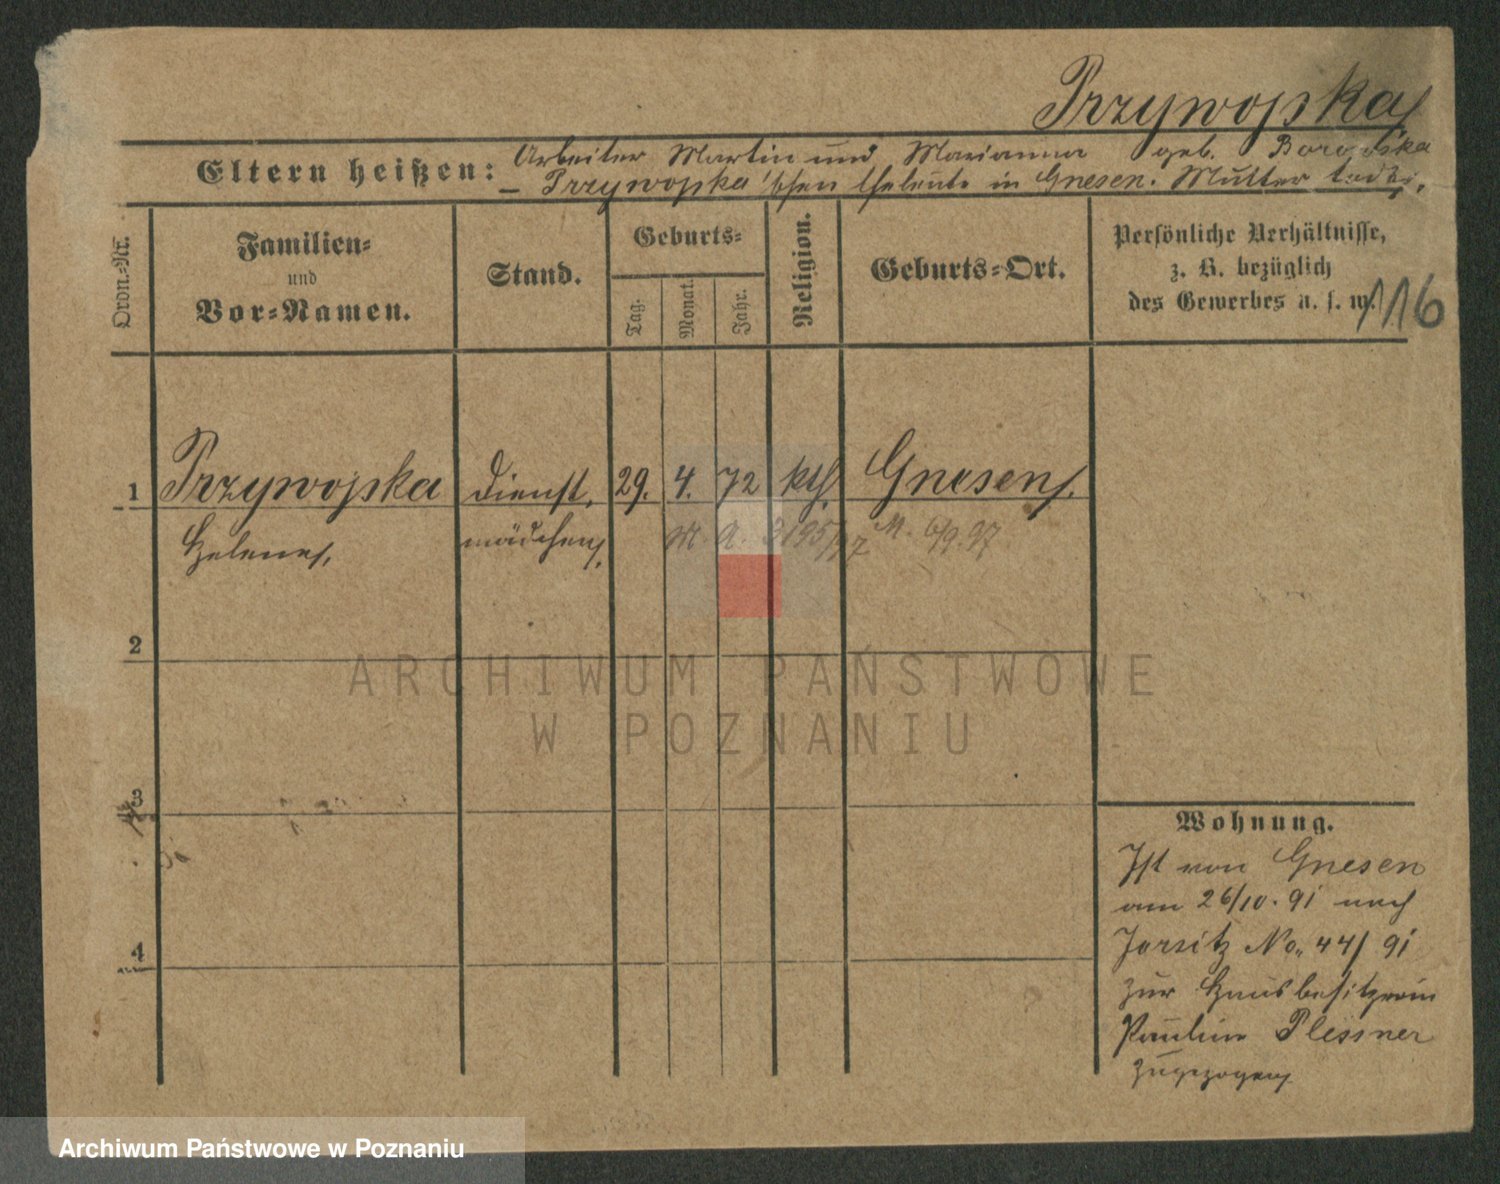 Przywojska
Eltern heißen: Arbeiter Martin und Marianna geb.
– Przywojska'schen Eheleute in Gnesen. Mutter
Ordn.-Nr.
Familien-
und
Vor-Namen.
Stand.
Geburts-
Tag.
Monat.
Jahr.
Religion.
Geburts-Ort.
Persönliche Verhältnisse,
z. B. bezüglich
des Gewerbes u. s. w.
116
1 Przywojska Dienst- 29. 4. 72 kth. Gnesen.
Helene. mädchen.
M. 6/9. 97
2
3
4
Wohnung.
Ist von Gnesen
am 26/10. 91 nach
Jersitz No. 44/91
zur Hausbesitzerin
Pauline Plessner
zugezogen
ARCHIWUM PAŃSTWOWE
W POZNANIU
Archiwum Państwowe w Poznaniu